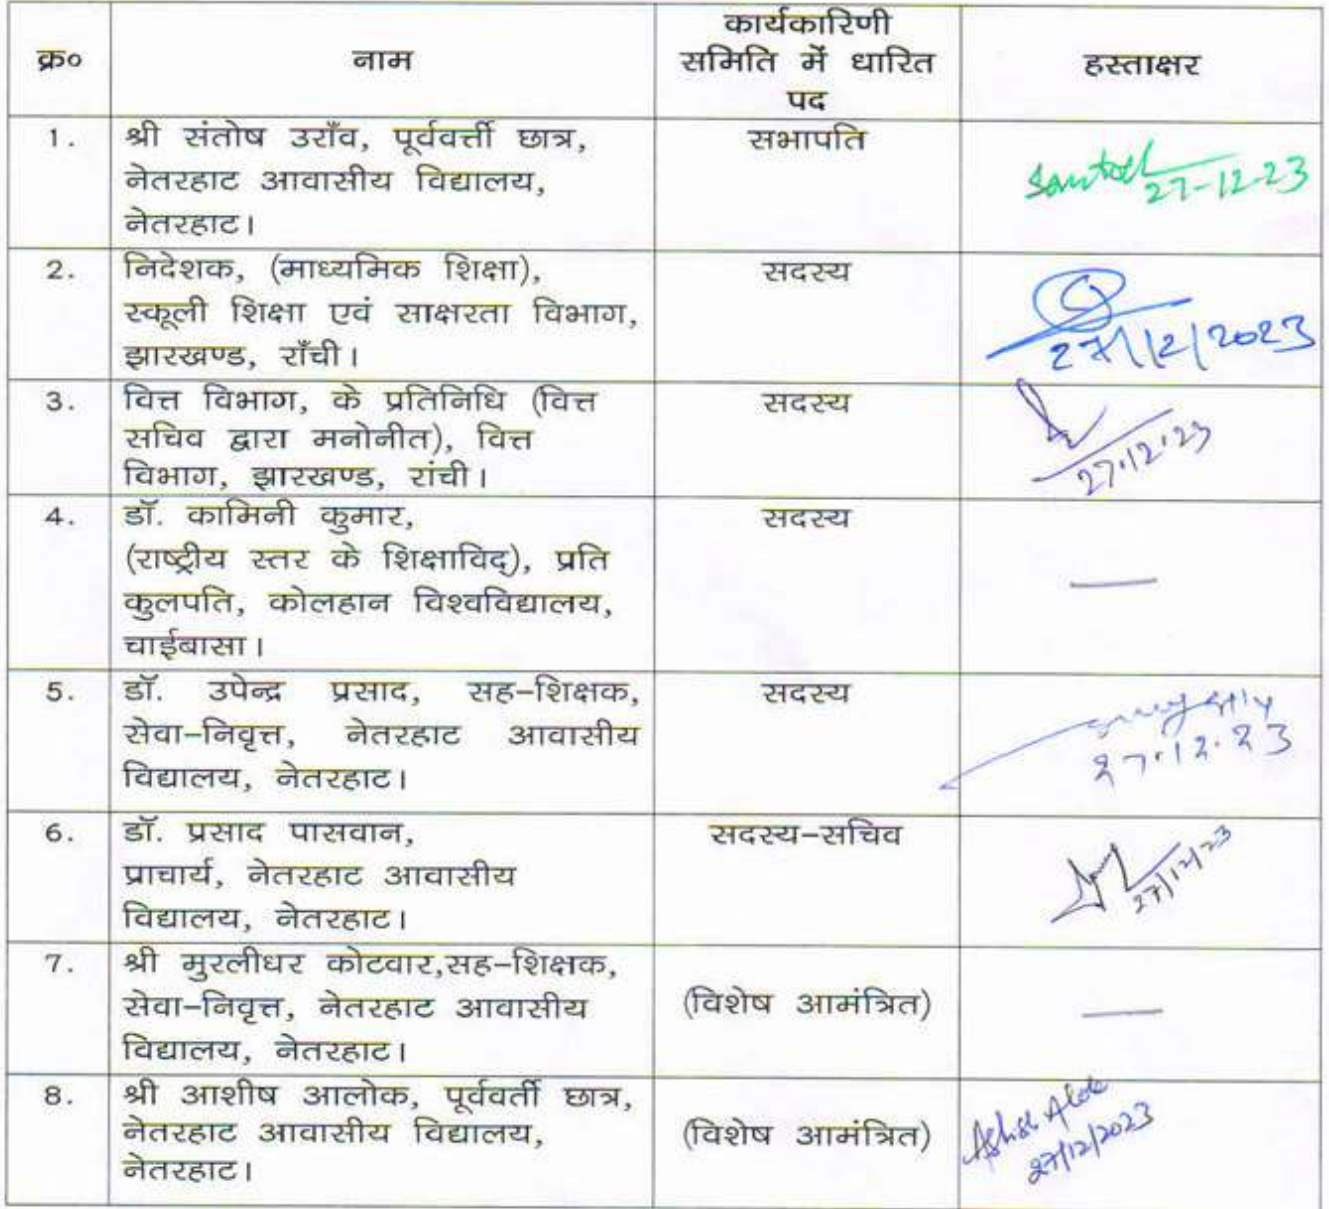 क्र०
नाम
कार्यकारिणी
समिति में धारित
पद
हस्ताक्षर
1.
श्री संतोष उराँव, पूर्ववर्त्ती छात्र,
नेतरहाट आवासीय विद्यालय,
नेतरहाट।
सभापति
Santosh
27-12-23
2.
निदेशक, (माध्यमिक शिक्षा),
स्कूली शिक्षा एवं साक्षरता विभाग,
झारखण्ड, राँची।
सदस्य
27/12/2023
3.
वित्त विभाग, के प्रतिनिधि (वित्त
सचिव द्वारा मनोनीत), वित्त
विभाग, झारखण्ड, रांची।
सदस्य
27.12.23
4.
डॉ. कामिनी कुमार,
(राष्ट्रीय स्तर के शिक्षाविद्), प्रति
कुलपति, कोलहान विश्वविद्यालय,
चाईबासा।
सदस्य
5.
डॉ. उपेन्द्र प्रसाद, सह-शिक्षक,
सेवा-निवृत्त, नेतरहाट आवासीय
विद्यालय, नेतरहाट।
सदस्य
27.12.23
6.
डॉ. प्रसाद पासवान,
प्राचार्य, नेतरहाट आवासीय
विद्यालय, नेतरहाट।
सदस्य-सचिव
27/12/23
7.
श्री मुरलीधर कोटवार,सह-शिक्षक,
सेवा-निवृत्त, नेतरहाट आवासीय
विद्यालय, नेतरहाट।
(विशेष आमंत्रित)
8.
श्री आशीष आलोक, पूर्ववर्ती छात्र,
नेतरहाट आवासीय विद्यालय,
नेतरहाट।
(विशेष आमंत्रित)
Ashish Alok
27/12/2023